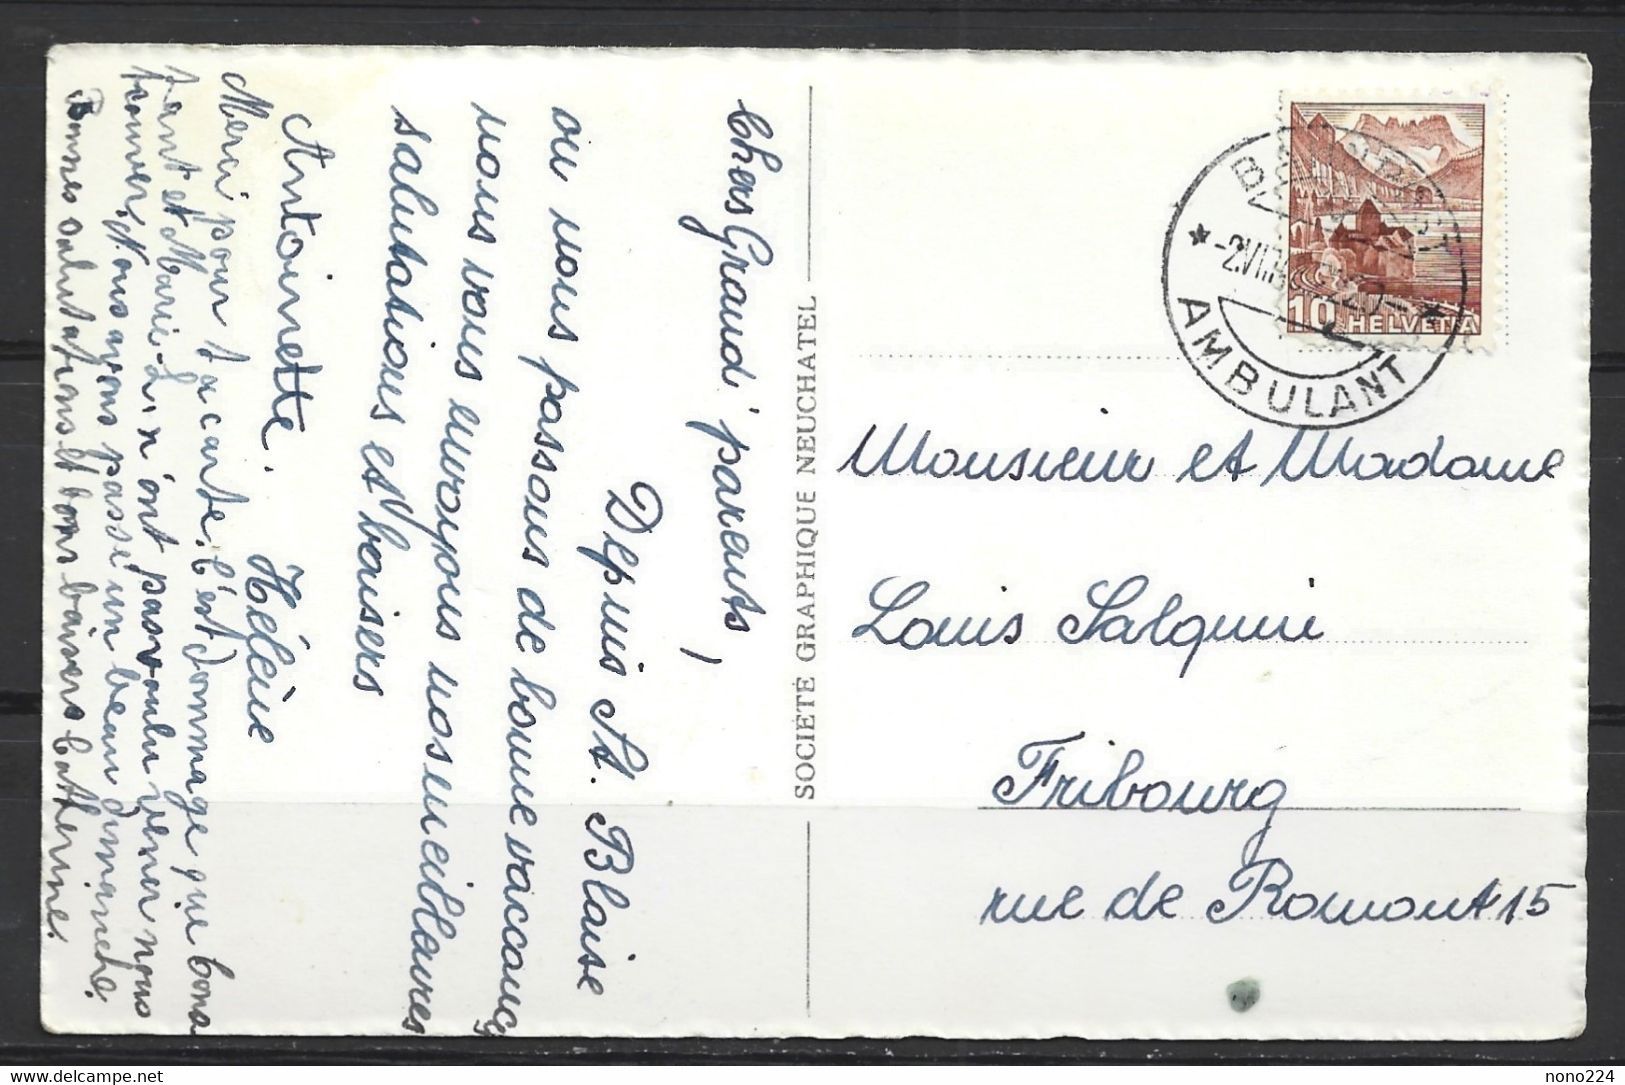 Chers Grand' parents,
Depuis St. Blaise
ou nous passons de bonne vaccances
nous vous envoyons nos meilleures
salutations et baisers
Antoinette. Hélène
Merci pour ta carte. C'est dommage que bons
tant et Marie-L. n'ont pas voulu venir nous
trouver. Nous avons passé un beau dimanche.
Bonnes salutations et bons baisers Catherine.
SOCIÉTÉ GRAPHIQUE NEUCHATEL
10 HELVETIA
AMBULANT
Monsieur et Madame
Louis Salquini
Fribourg
rue de Romont 15
nono224